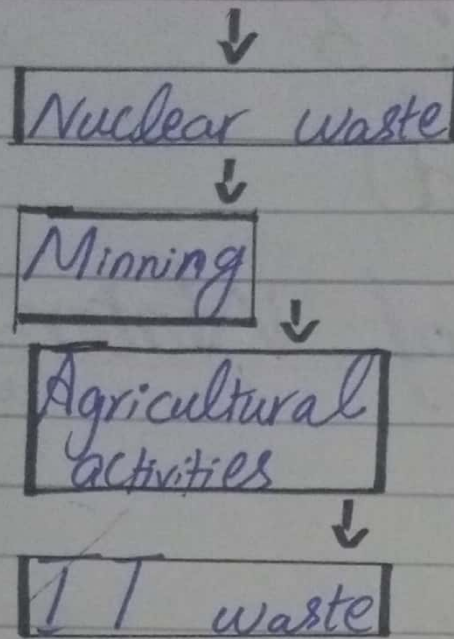 Nuclear waste
Minning
Agricultural
activities
IT waste